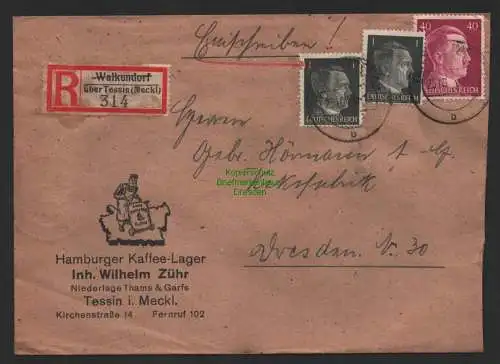 Einschreiben!
R
Walkendorf
über Tessin (Meckl)
314
1
1
40 40
DEUTSCHES REICH
DEUTSCHES REICH
DEUTSCHES REICH
b
b
Herren
Gebr. Hörmann A. G.
Dresden N. 30
Kopierschutz
Briefmarkenhaus
Dresden
Hamburger Kaffee-Lager
Inh. Wilhelm Zühr
Niederlage Thams & Garfs
Tessin i. Meckl.
Kirchenstraße 14 Fernruf 102